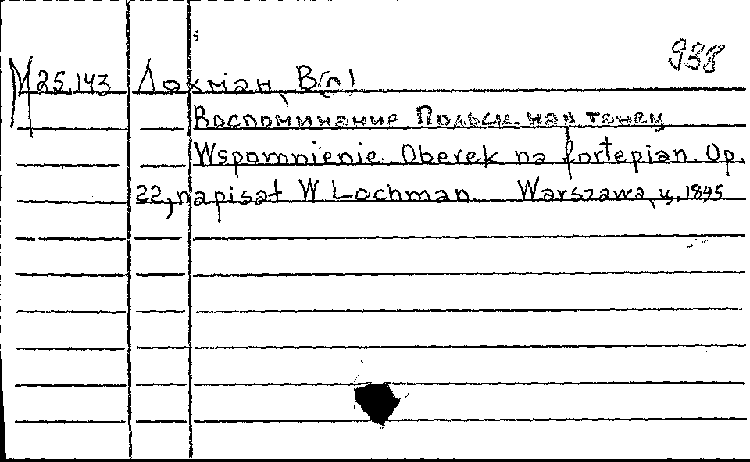 938
М 25.143 Лохман, В[л]
Воспоминание. Польск. нар. танец
Wspomnienie. Oberek na fortepian. Op.
22, napisał W Lochman. Warszawa, ц. 1895